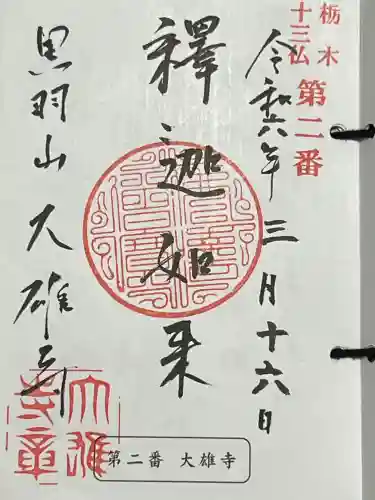 栃木
十三仏
第二番
令和六年三月十六日
釋迦如来
黒羽山大雄寺
大雄
寺章
第二番 大雄寺